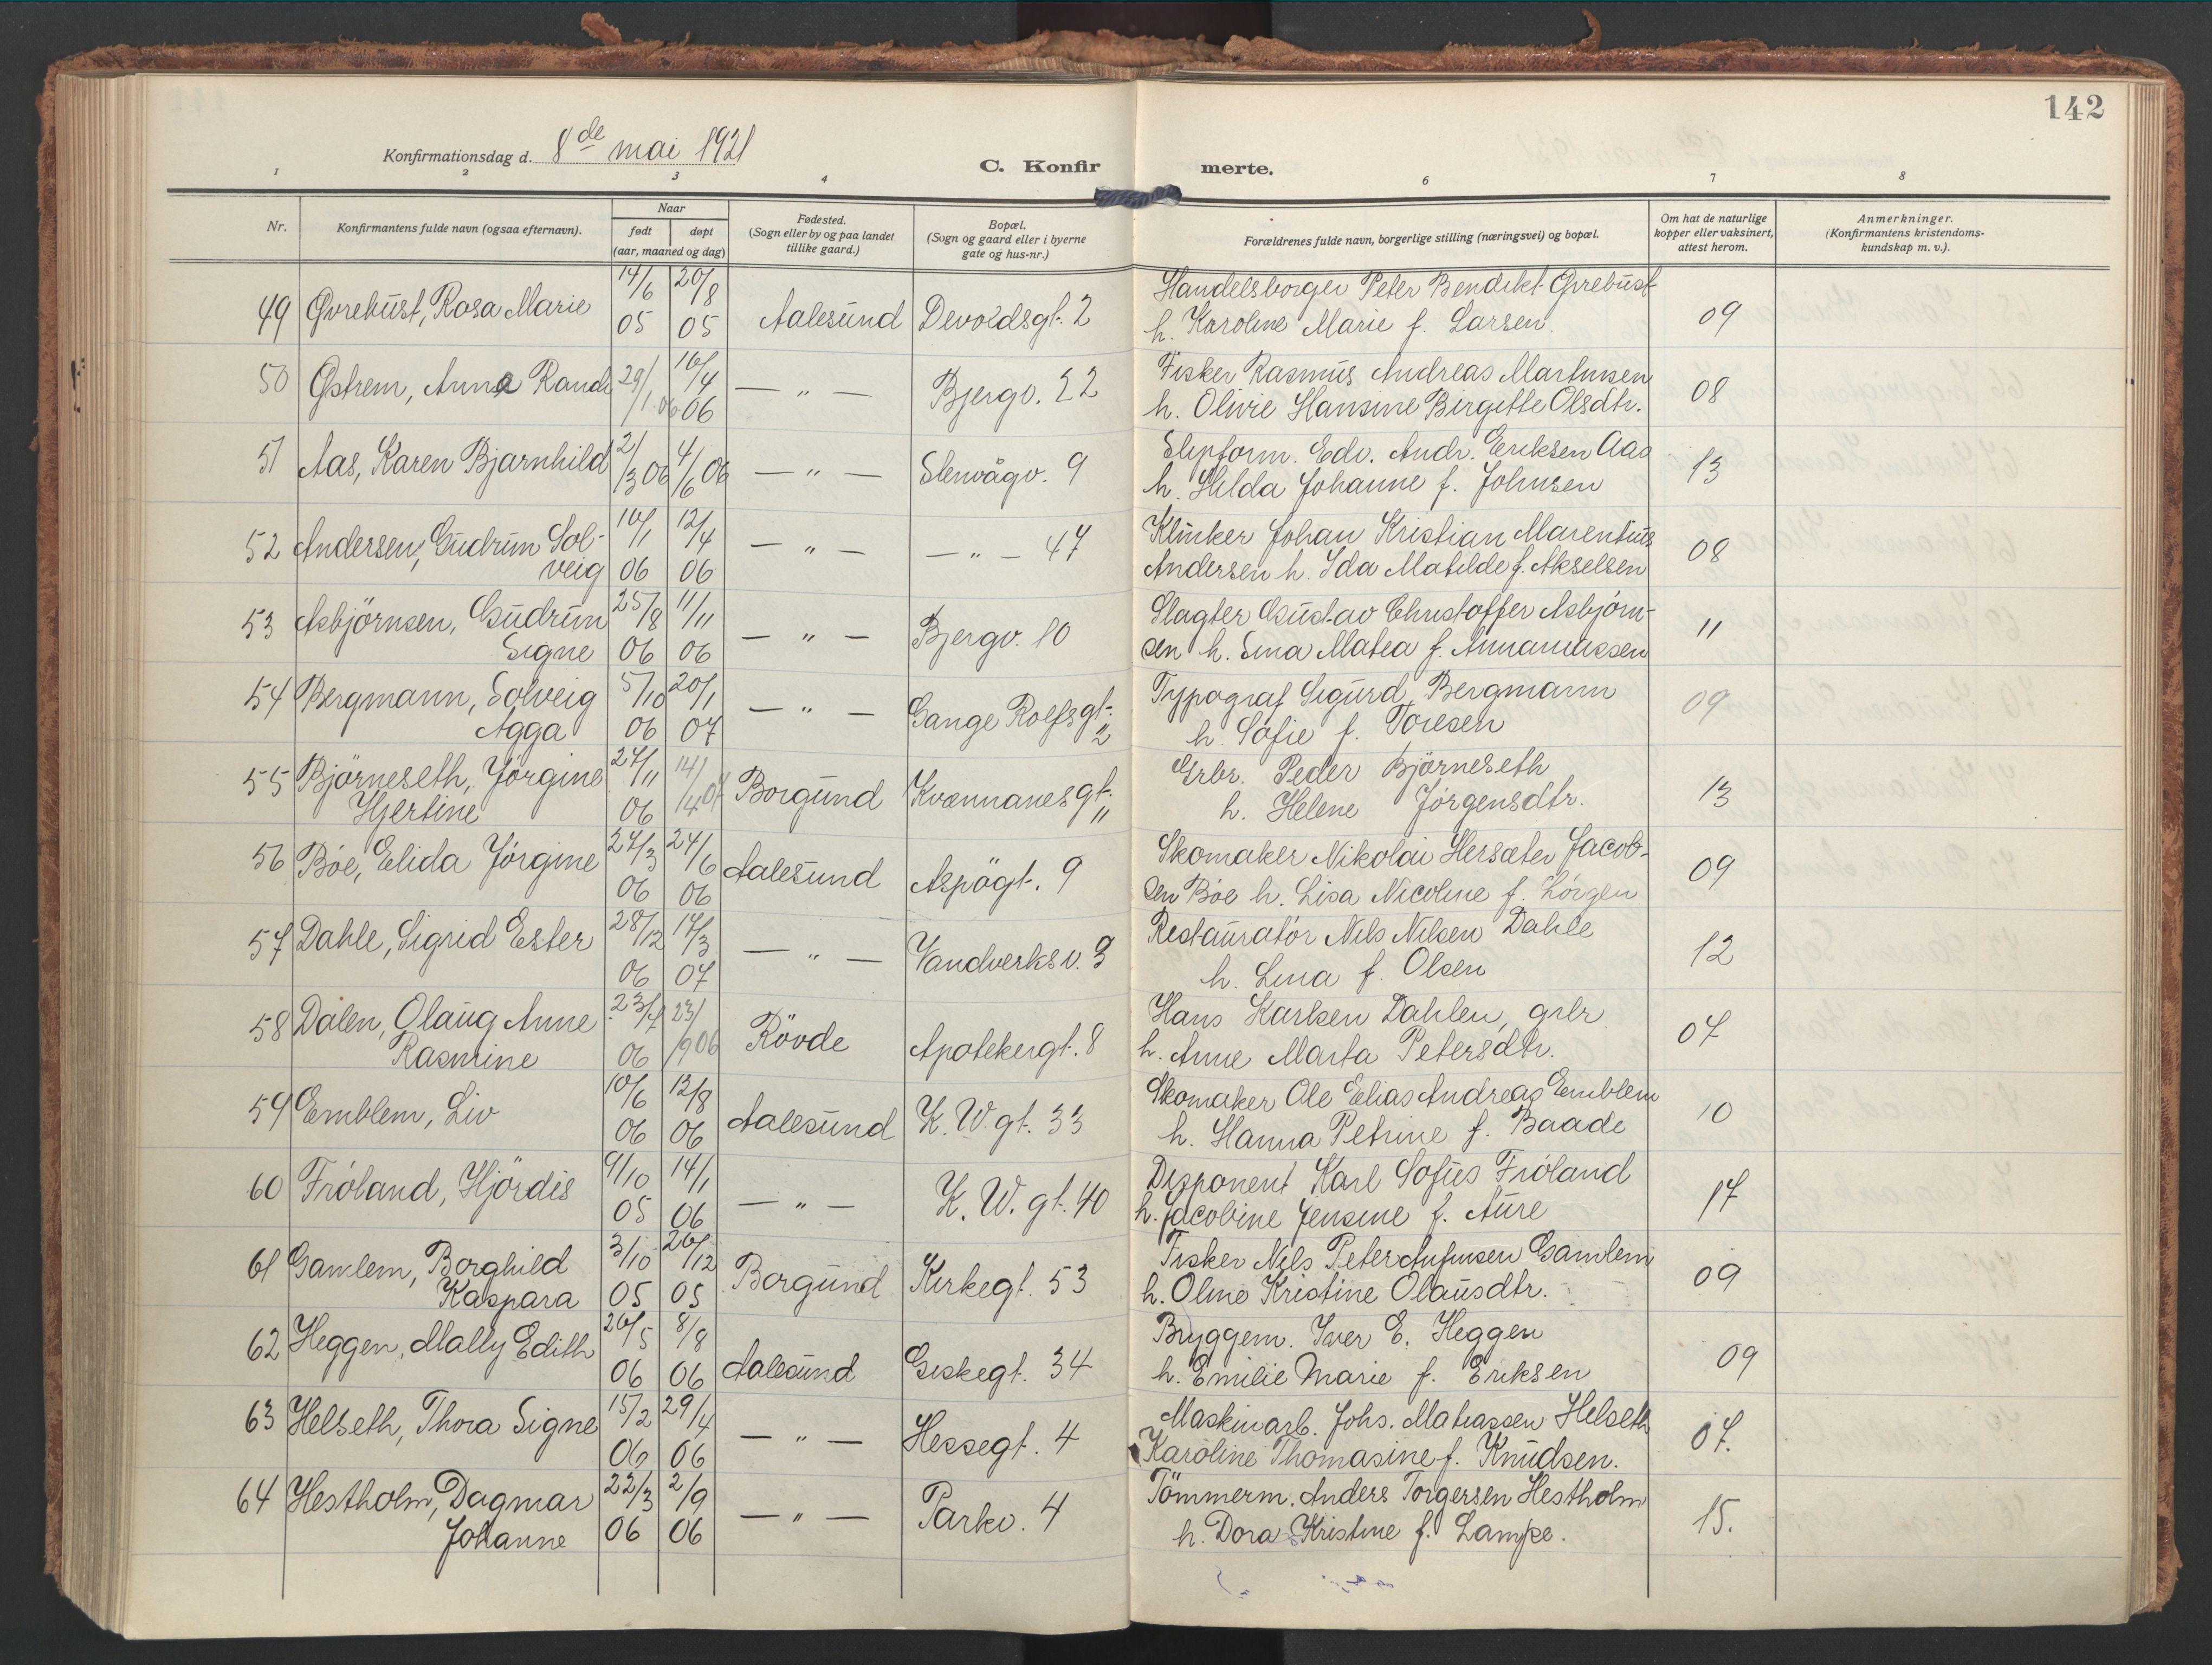 142
Konfirmationsdag d. 8de mai 1921
C. Konfir merte.
1 2 3 4 6 7 8
Nr.
Konfirmantens fulde navn (ogsaa efternavn).
Naar
født døpt
(aar, maaned og dag)
Fødested.
(Sogn eller by og paa landet
tillike gaard.)
Bopæl.
(Sogn og gaard eller i byerne
gate og hus-nr.)
Forældrenes fulde navn, borgerlige stilling (næringsvei) og bopæl.
Om hat de naturlige
kopper eller vaksinert,
attest herom.
Anmerkninger.
(Konfirmantens kristendoms-
kundskap m. v.).
14/6 20/8 Handelsborger Peter Bendikt Øvrebust
49 Øvrebust, Rosa Marie 05 05 Aalesund Devoldsgt. 2 h. Karoline Marie f. Larsen. 09
50 Østrem, Anna Randi 29/1 06 16/4 06 — " — Bjergv. 22 Fisker Rasmus Andreas Martinusen 08
h. Olivie Hansine Birgitte Olsdtr.
51 Aas, Karen Bjarnhild 2/3 06 4/6 06 — " — Stenvågv. 9 Slipform. Edv. Andr. Eriksen Aas 13
h. Hilda Johanne f. Johnsen
52 Andersen, Gudrun Sol- 10/1 12/4 — " — — " — 47 Klinker Johan Kristian Marentius 08
veig 06 06 Andersen h. Ida Matilde f. Akselsen
53 Asbjörnsen, Gudrun 25/8 11/11 — " — Bjergv. 10 Slagter Gustav Christoffer Asbjörn- 11
Signe 06 06 sen h. Sina Matea f. Annaniassen
54 Bergmann, Solveig 5/10 20/1 — " — Gange Rolfsgt. 2 Typograf Sigurd Bergmann 09
Agga 06 07 h. Sofie f. Toresen
55 Björneseth, Jörgine 27/11 14/4 07 Borgund Kvennanesgt. 11 Grbr. Peder Björneseth 13
Hjertine 06 h. Helene Jörgensdtr.
56 Böe, Elida Jörgine 27/3 24/6 Aalesund Aspögt. 9 Skomaker Nikolai Hersæter Jacob- 09
06 06 sen Böe h. Lisa Nicoline f. Lörgen
57 Dahle, Sigrid Ester 28/12 17/3 — " — Vandverksv. 3 Restauratör Nils Nilsen Dahle 12
06 07 h. Lina f. Olsen
58 Dalen, Olaug Anne 23/7 23/9 06 Rövde Apotekergt. 8 Hans Karlsen Dahlen, grbr 07
Rasmine 06 h. Anne Marta Petersdtr.
59 Emblem, Liv 10/6 12/8 Aalesund K. W. gt. 33 Skomaker Ole Elias Andreas Emblem 10
06 06 h. Hanna Petrine f. Baade
60 Fröland, Hjördis 9/10 14/1 — " — K. W. gt. 40 Disponent Karl Sofus Fröland 17
05 06 h. Jacobine Jensine f. Aure
61 Gamlem, Borghild 3/10 26/12 Borgund Kirkegt. 53 Fisker Nils Peter Gamlem 09
Kaspara 05 05 h. Oline Kristine Olausdtr.
62 Heggen, Mally Edith 26/5 8/8 Aalesund Giskegt. 34 Bryggem. Iver E. Heggen 09
06 06 h. Emilie Marie f. Eriksen
63 Helseth, Thora Signe 15/2 29/4 — " — Hessegt. 4 Maskinarb. Johs. Matiassen Helseth 07.
06 06 Karoline Thomasine f. Knudsen.
64 Hestholm, Dagmar 22/3 2/9 — " — Parkv. 4 Tömmerm. Anders Torgersen Hestholm 15.
Johanne 06 06 h. Dora Kristine f. Lampe.